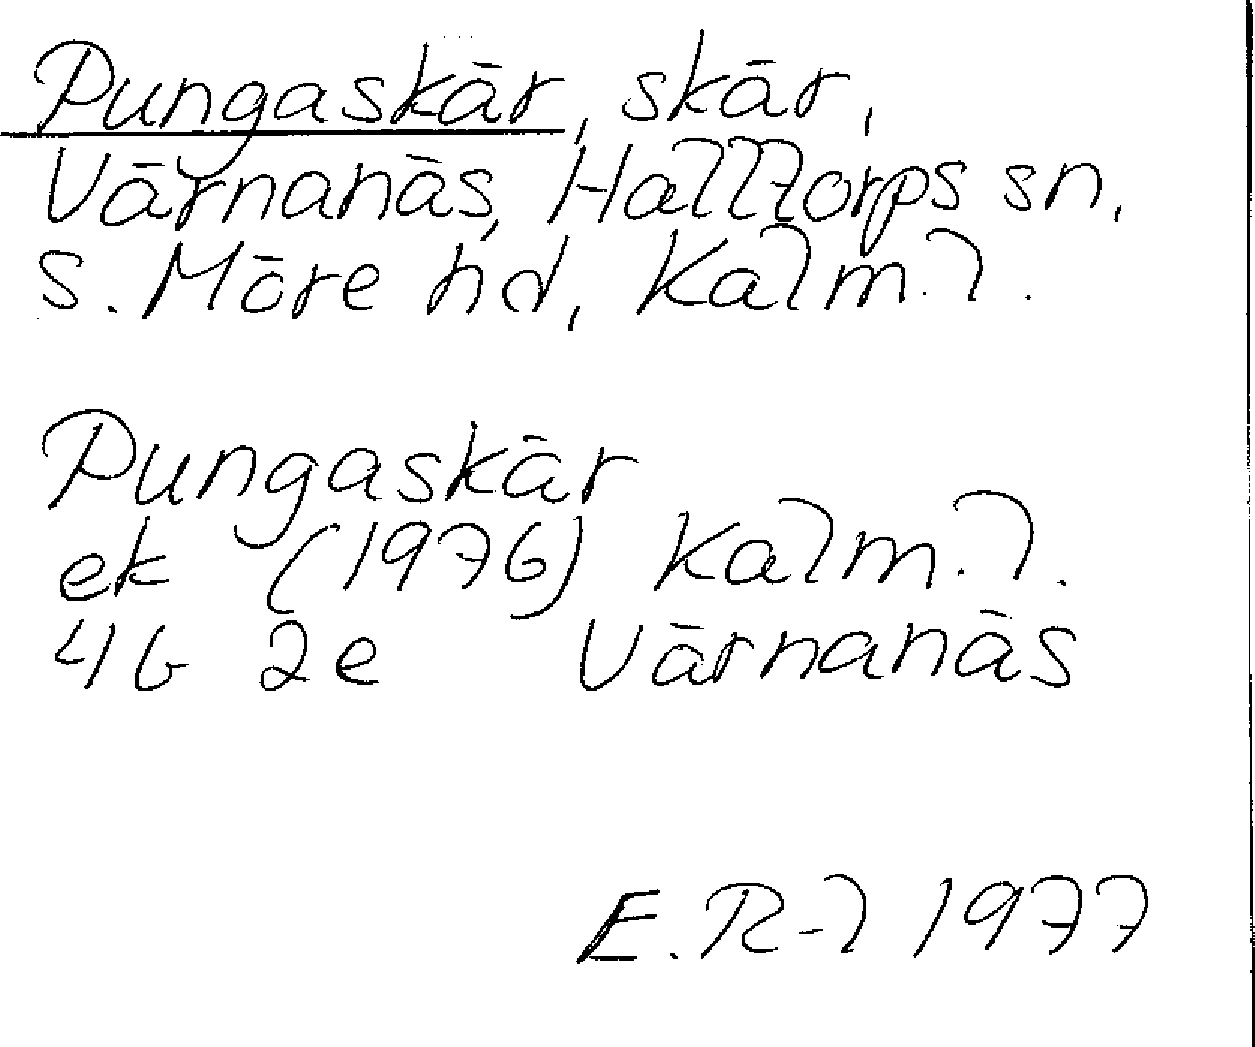 Pungaskär, skär,
Värnanäs, Halltorps sn,
S. Möre hd, Kalm. l.
Pungaskär
ek (1976) Kalm. l.
4G 2e Värnanäs
E. R-l 1977